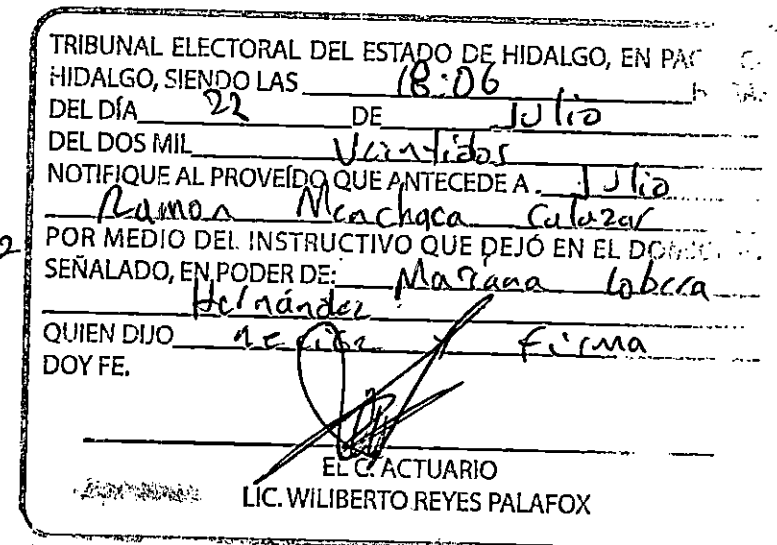 TRIBUNAL ELECTORAL DEL ESTADO DE HIDALGO, EN PAC
HIDALGO, SIENDO LAS 18:06
DEL DÍA 22 DE Julio
DEL DOS MIL Veintidos
NOTIFIQUE AL PROVEÍDO QUE ANTECEDE A. Julio
Ramon Menchaca Salazar
2 POR MEDIO DEL INSTRUCTIVO QUE DEJÓ EN EL DOMIC
SEÑALADO, EN PODER DE: Mariana lobera
Hernández
QUIEN DIJO recibe y firma
DOY FE.
EL C. ACTUARIO
LIC. WILIBERTO REYES PALAFOX